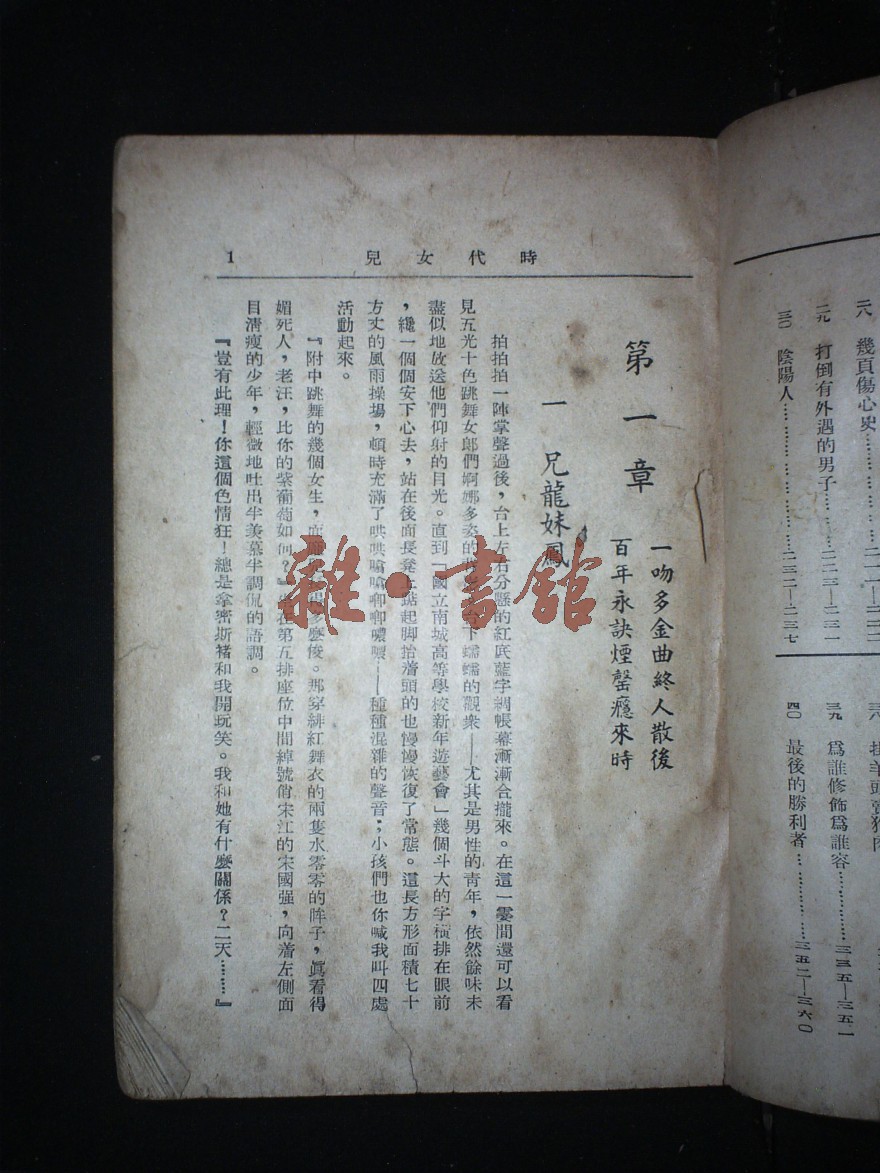 時代女兒
1
第一章
一吻多金曲終人散後
百年永訣煙罄癮來時
一 兄龍妹鳳
拍拍拍一陣掌聲過後，台上左右分懸的紅底藍字綢帳幕漸漸合攏來。在這一霎間還可以看
見五光十色跳舞女郎們婀娜多姿的 台下蠕蠕的觀衆——尤其是男性的青年，依然餘味未
盡似地放送他們仰射的目光。直到「國立南城高等學校新年遊藝會」幾個斗大的字橫排在眼前
，纔一個個安下心去，站在後面長凳上踮起脚抬着頭的也慢慢恢復了常態。這長方形面積七十
方丈的風雨操場，頓時充滿了哄哄嗡嗡唧唧噥噥——種種混雜的聲音；小孩們也你喊我叫四處
活動起來。
『附中跳舞的幾個女生，面 多麽俊。那穿緋紅舞衣的兩隻水零零的眸子，眞看得
媚死人，老汪，比你的紫葡萄如何？』 在第五排座位中間綽號俏宋江的宋國强，向着左側面
目淸瘦的少年，輕微地吐出半羡慕半調侃的語調。
『豈有此理！你這個色情狂！總是拿密斯褚和我開玩笑。我和她有什麽關係？二天………』
雜·書館
二八 幾頁傷心史
二九 打倒有外遇的男子……二二三—二三一
三〇 陰陽人……二三二—二三七
掛羊頭賣狗肉
三九 爲誰修飾爲誰容……三三五—三五一
四〇 最後的勝利者……三五二—三六〇